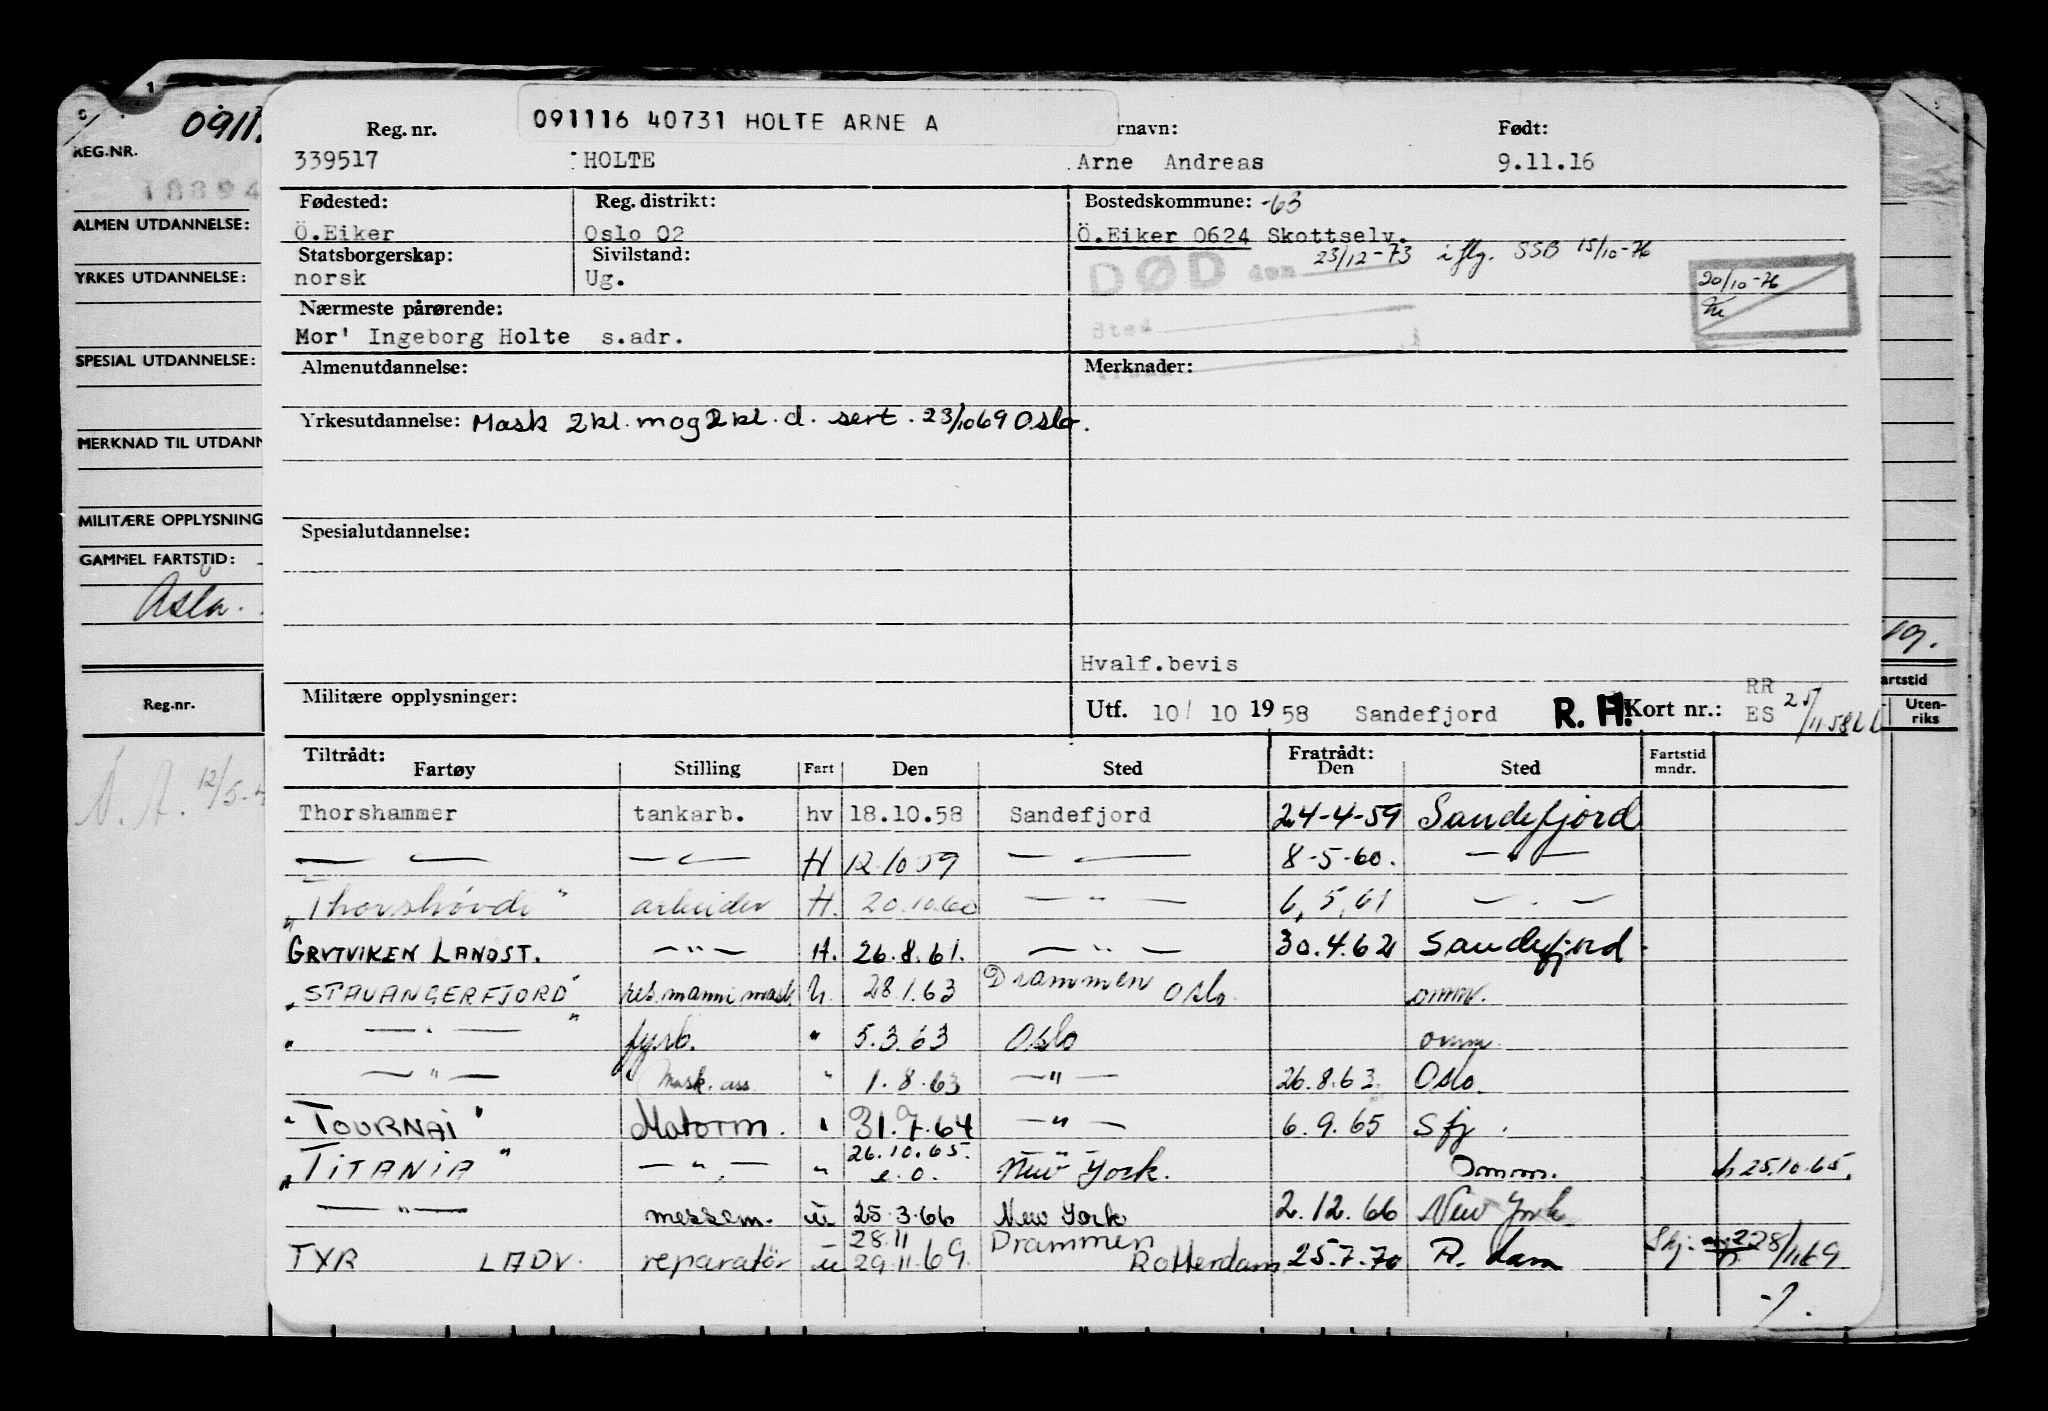 091116 40731 HOLTE ARNE A
Reg. nr. rnavn: Født:
339517 HOLTE Arne Andreas 9.11.16
Fødested: Reg. distrikt: Bostedskommune: -63
Ö.Eiker Oslo 02 Ö.Eiker 0624 Skottselv.
Statsborgerskap: Sivilstand: DØD den 23/12-73 iflg. SSB 15/10-76
norsk Ug. 20/10-76
Nærmeste pårørende:
Mor' Ingeborg Holte s.adr. Sted
Almenutdannelse: Merknader:
Yrkesutdannelse: Mask 2kl. mog 2kl. d. sert. 23/10 69 Oslo.
Spesialutdannelse:
Hvalf.bevis
Militære opplysninger: Utf. 10/ 10 1958 Sandefjord R. H. Kort nr.: RR ES 25/11.58
Tiltrådt: Fratrådt:
Fartøy Stilling Fart Den Sted Den Sted Fartstid mndr.
Thorshammer tankarb. hv 18.10.58 Sandefjord 24-4-59 Sandefjord
— " — — " — H 12.10.59 — " — 8-5-60. — " —
"Thorshövdi" arbeider H. 20.10.60 — " — 6,5,61 — " —
GRYTVIKEN LANDST. — " — H. 26.8.61. — " — 30.4.62 Sandefjord
"STAVANGERFJORD" res. mann i mask. U. 28.1.63 Drammen Oslo omm.
" — " — " fyrb. " 5.3.63 Oslo omm.
— " — Mask. ass. " 1.8.63 — " — 26.8.63 Oslo.
"TOURNAI" Motorm. " 31.7.64 — " — 6.9.65 Sfj.
"TITANIA" — " — " 26.10.65. e.o. New York. Omm. fr 25.10.65.
— " — messem. u 25.3.66 New York 2.12.66 New York
TYR LADV. reparatör u 28.11 29.11.69. Drammen Rotterdam 25.7.70 R. dam 28/11 69
REG.NR. 0911.
18894
ALMEN UTDANNELSE:
YRKES UTDANNELSE:
SPESIAL UTDANNELSE:
MERKNAD TIL UTDANN
MILITÆRE OPPLYSNING
GAMMEL FARTSTID:
Reg.nr.
N. A. 12/5-4
19.
artstid
Uten-
riks